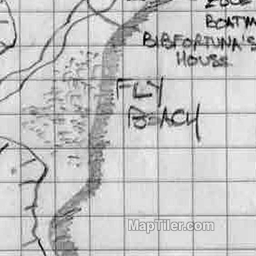 BOATM
BIBFORTUNA'S
HOUSE
FLY
BEACH
MapTiler.com